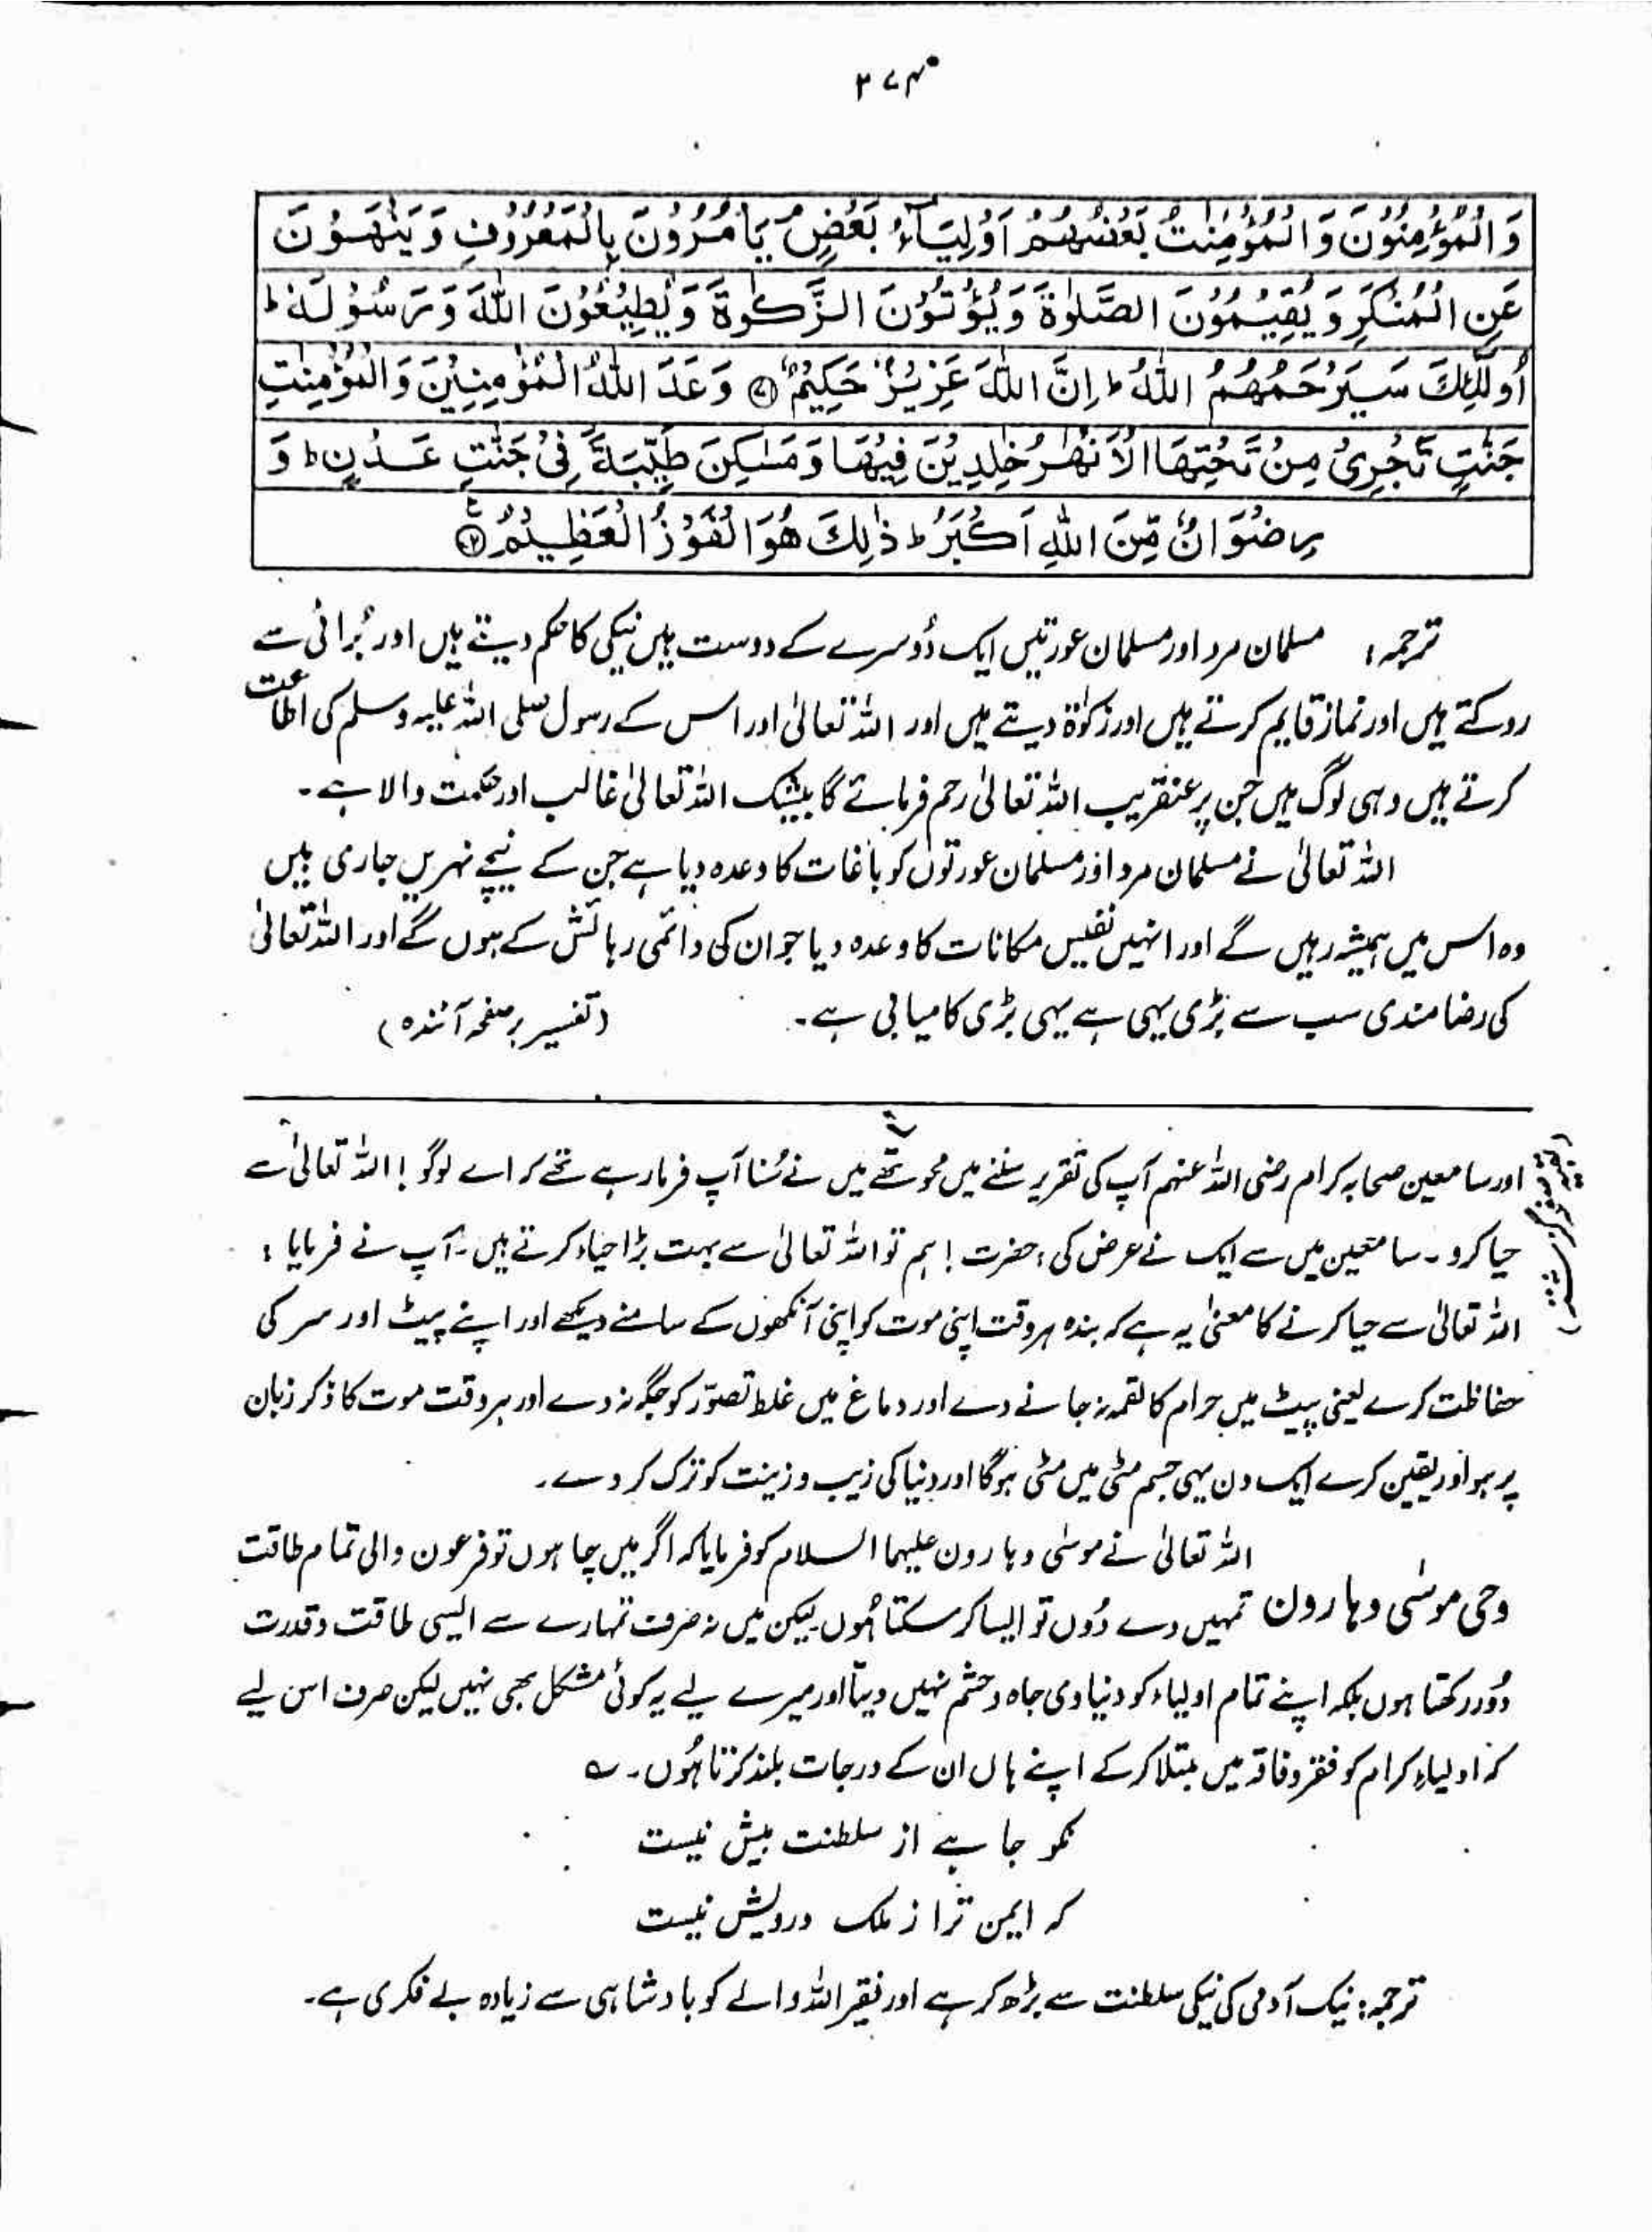 ۳۷۴
وَالْمُؤْمِنُوْنَ وَالْمُؤْمِنٰتُ بَعْضُهُمْ اَوْلِيَآءُ بَعْضٍ ۘ يَاْمُرُوْنَ بِالْمَعْرُوْفِ وَيَنْهَوْنَ
عَنِ الْمُنْكَرِ وَيُقِيْمُوْنَ الصَّلٰوةَ وَيُؤْتُوْنَ الزَّكٰوةَ وَيُطِيْعُوْنَ اللّٰهَ وَرَسُوْلَهٗ ؕ
اُولٰٓئِكَ سَيَرْحَمُهُمُ اللّٰهُ ؕ اِنَّ اللّٰهَ عَزِيْزٌ حَكِيْمٌ ﴿۷۱﴾ وَعَدَ اللّٰهُ الْمُؤْمِنِيْنَ وَالْمُؤْمِنٰتِ
جَنّٰتٍ تَجْرِيْ مِنْ تَحْتِهَا الْاَنْهٰرُ خٰلِدِيْنَ فِيْهَا وَمَسٰكِنَ طَيِّبَةً فِيْ جَنّٰتِ عَدْنٍ ؕ وَ
رِضْوَانٌ مِّنَ اللّٰهِ اَكْبَرُ ؕ ذٰلِكَ هُوَ الْفَوْزُ الْعَظِيْمُ ﴿۷۲﴾
ترجمہ: مسلمان مرد اور مسلمان عورتیں ایک دُوسرے کے دوست ہیں نیکی کا حکم دیتے ہیں اور بُرائی سے
روکتے ہیں اور نماز قایم کرتے ہیں اور زکوٰۃ دیتے ہیں اور اللہ تعالیٰ اور اس کے رسول صلی اللہ علیہ وسلم کی اطاعت
کرتے ہیں وہی لوگ ہیں جن پر عنقریب اللہ تعالیٰ رحم فرمائے گا بیشک اللہ تعالیٰ غالب اور حکمت والا ہے۔
اللہ تعالیٰ نے مسلمان مرد اور مسلمان عورتوں کو باغات کا وعدہ دیا ہے جن کے نیچے نہریں جاری ہیں
وہ اس میں ہمیشہ رہیں گے اور انہیں نفیس مکانات کا وعدہ دیا جو ان کی دائمی رہائش کے ہوں گے اور اللہ تعالیٰ
کی رضامندی سب سے بڑی یہی ہے یہی بڑی کامیابی ہے۔ (تفسیر بر صفحہ آئندہ)
(بقیہ صفحہ گزشتہ)
اور سامعین صحابہ کرام رضی اللہ عنہم آپ کی تقریر سننے میں محو تھے میں نے سُنا آپ فرما رہے تھے کہ اے لوگو! اللہ تعالیٰ سے
حیا کرو۔ سامعین میں سے ایک نے عرض کی: حضرت! ہم تو اللہ تعالیٰ سے بہت بڑا حیاء کرتے ہیں۔ آپ نے فرمایا:
اللہ تعالیٰ سے حیا کرنے کا معنیٰ یہ ہے کہ بندہ ہر وقت اپنی موت کو اپنی آنکھوں کے سامنے دیکھے اور اپنے پیٹ اور سر کی
حفاظت کرے یعنی پیٹ میں حرام کا لقمہ نہ جانے دے اور دماغ میں غلط تصوّر کو جگہ نہ دے اور ہر وقت موت کا ذکر زبان
پر ہو اور یقین کرے ایک دن یہی جسم مٹی میں مٹی ہوگا اور دنیا کی زیب و زینت کو ترک کر دے۔
اللہ تعالیٰ نے موسٰی و ہارون علیہما السلام کو فرمایا کہ اگر میں چاہوں تو فرعون والی تمام طاقت
وحی موسٰی و ہارون تمہیں دے دُوں تو ایسا کر سکتا ہُوں لیکن میں نہ صرف تمہارے سے ایسی طاقت و قدرت
دُور رکھتا ہوں بلکہ اپنے تمام اولیاء کو دنیاوی جاہ و حشم نہیں دیتا اور میرے لیے یہ کوئی مشکل بھی نہیں لیکن صرف اس لیے
کہ اولیاءِ کرام کو فقر و فاقہ میں مبتلا کر کے اپنے ہاں ان کے درجات بلند کرتا ہُوں۔ ؎
نکو جاہے از سلطنت بیش نیست
کہ ایمن تر از ملک درویش نیست
ترجمہ: نیک آدمی کی نیکی سلطنت سے بڑھ کر ہے اور فقیر اللہ والے کو بادشاہی سے زیادہ بے فکری ہے۔